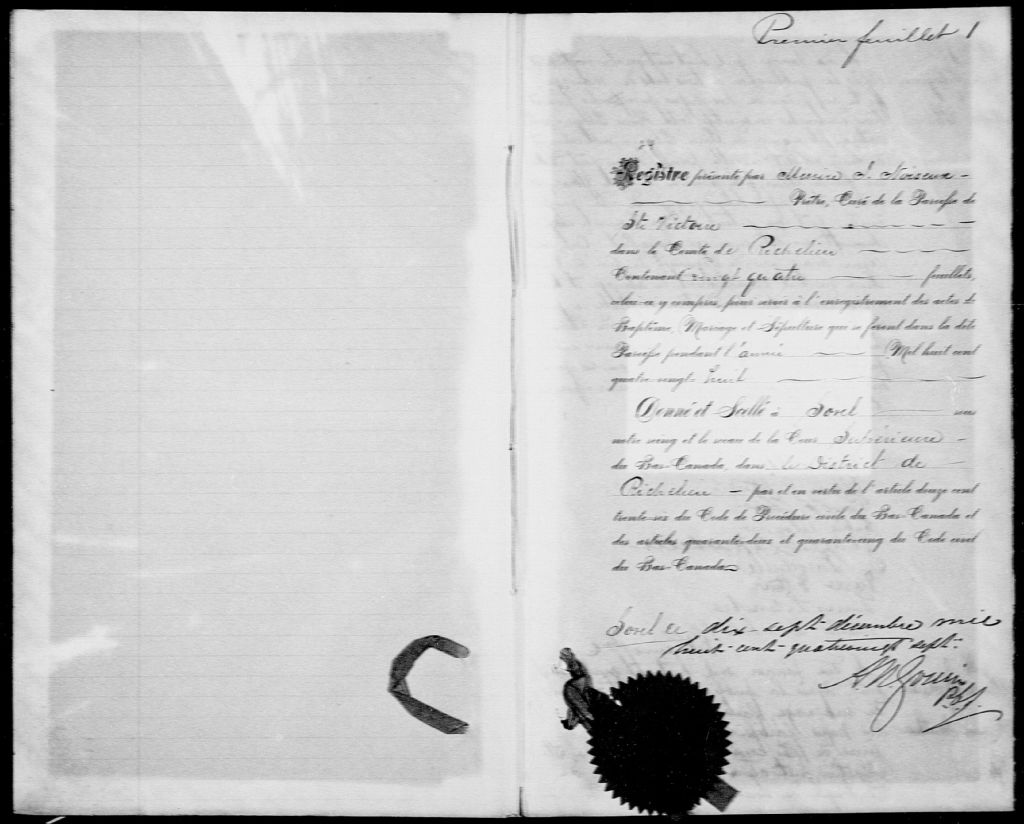 Premier feuillet 1
Registre présenté par Messire J. Noiseux
Prêtre, Curé de la Paroisse de
Ste Victoire
dans le Comté de Richelieu
Contenant vingt quatre feuillets,
celui-ci y compris, pour servir à l'enregistrement des actes de
Baptême, Mariage et Sépulture qui se feront dans la dite
Paroisse pendant l'année Mil huit cent
quatre-vingt-huit
Donné et Scellé à Sorel sous
notre seing et le sceau de la Cour Supérieure
du Bas-Canada, dans le District de
Richelieu par et en vertu de l'article douze cent
trente-six du Code de Procédure civile du Bas-Canada et
des articles quarante-deux et quarante-cinq du Code civil
du Bas-Canada
Sorel ce dix-sept décembre mil
huit-cent-quatrevingt sept.
A N Gouin
P.C.S.